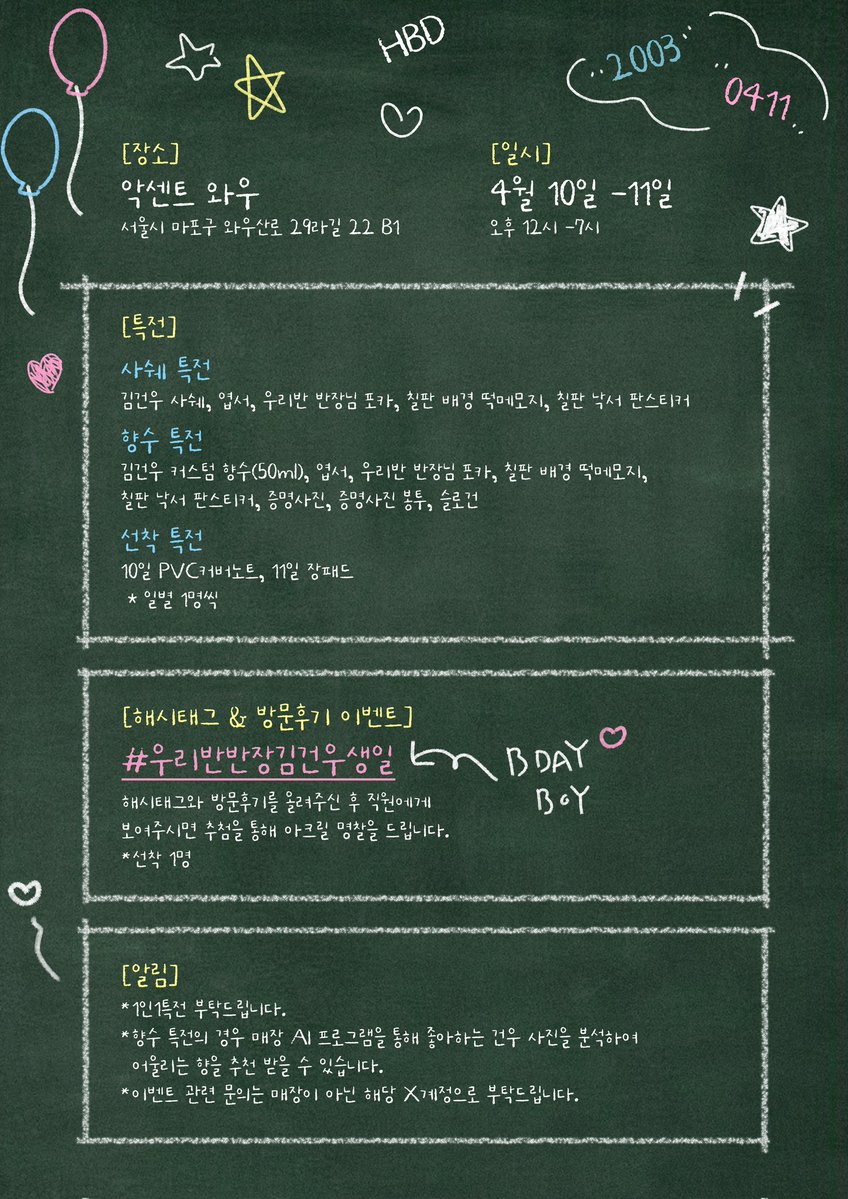 HBD
2003
0411
[장소]
악센트 와우
서울시 마포구 와우산로 29라길 22 B1
[일시]
4월 10일 -11일
오후 12시 -7시
[특전]
사쉐 특전
김건우 사쉐, 엽서, 우리반 반장님 포카, 칠판 배경 떡메모지, 칠판 낙서 판스티커
향수 특전
김건우 커스텀 향수(50ml), 엽서, 우리반 반장님 포카, 칠판 배경 떡메모지,
칠판 낙서 판스티커, 증명사진, 증명사진 봉투, 슬로건
선착 특전
10일 PVC커버노트, 11일 장패드
* 일별 1명씩
[해시태그 & 방문후기 이벤트]
#우리반반장김건우생일
BDAY
BOY
해시태그와 방문후기를 올려주신 후 직원에게
보여주시면 추첨을 통해 아크릴 명찰을 드립니다.
*선착 1명
[알림]
*1인1특전 부탁드립니다.
*향수 특전의 경우 매장 AI 프로그램을 통해 좋아하는 건우 사진을 분석하여
어울리는 향을 추천 받을 수 있습니다.
*이벤트 관련 문의는 매장이 아닌 해당 X계정으로 부탁드립니다.